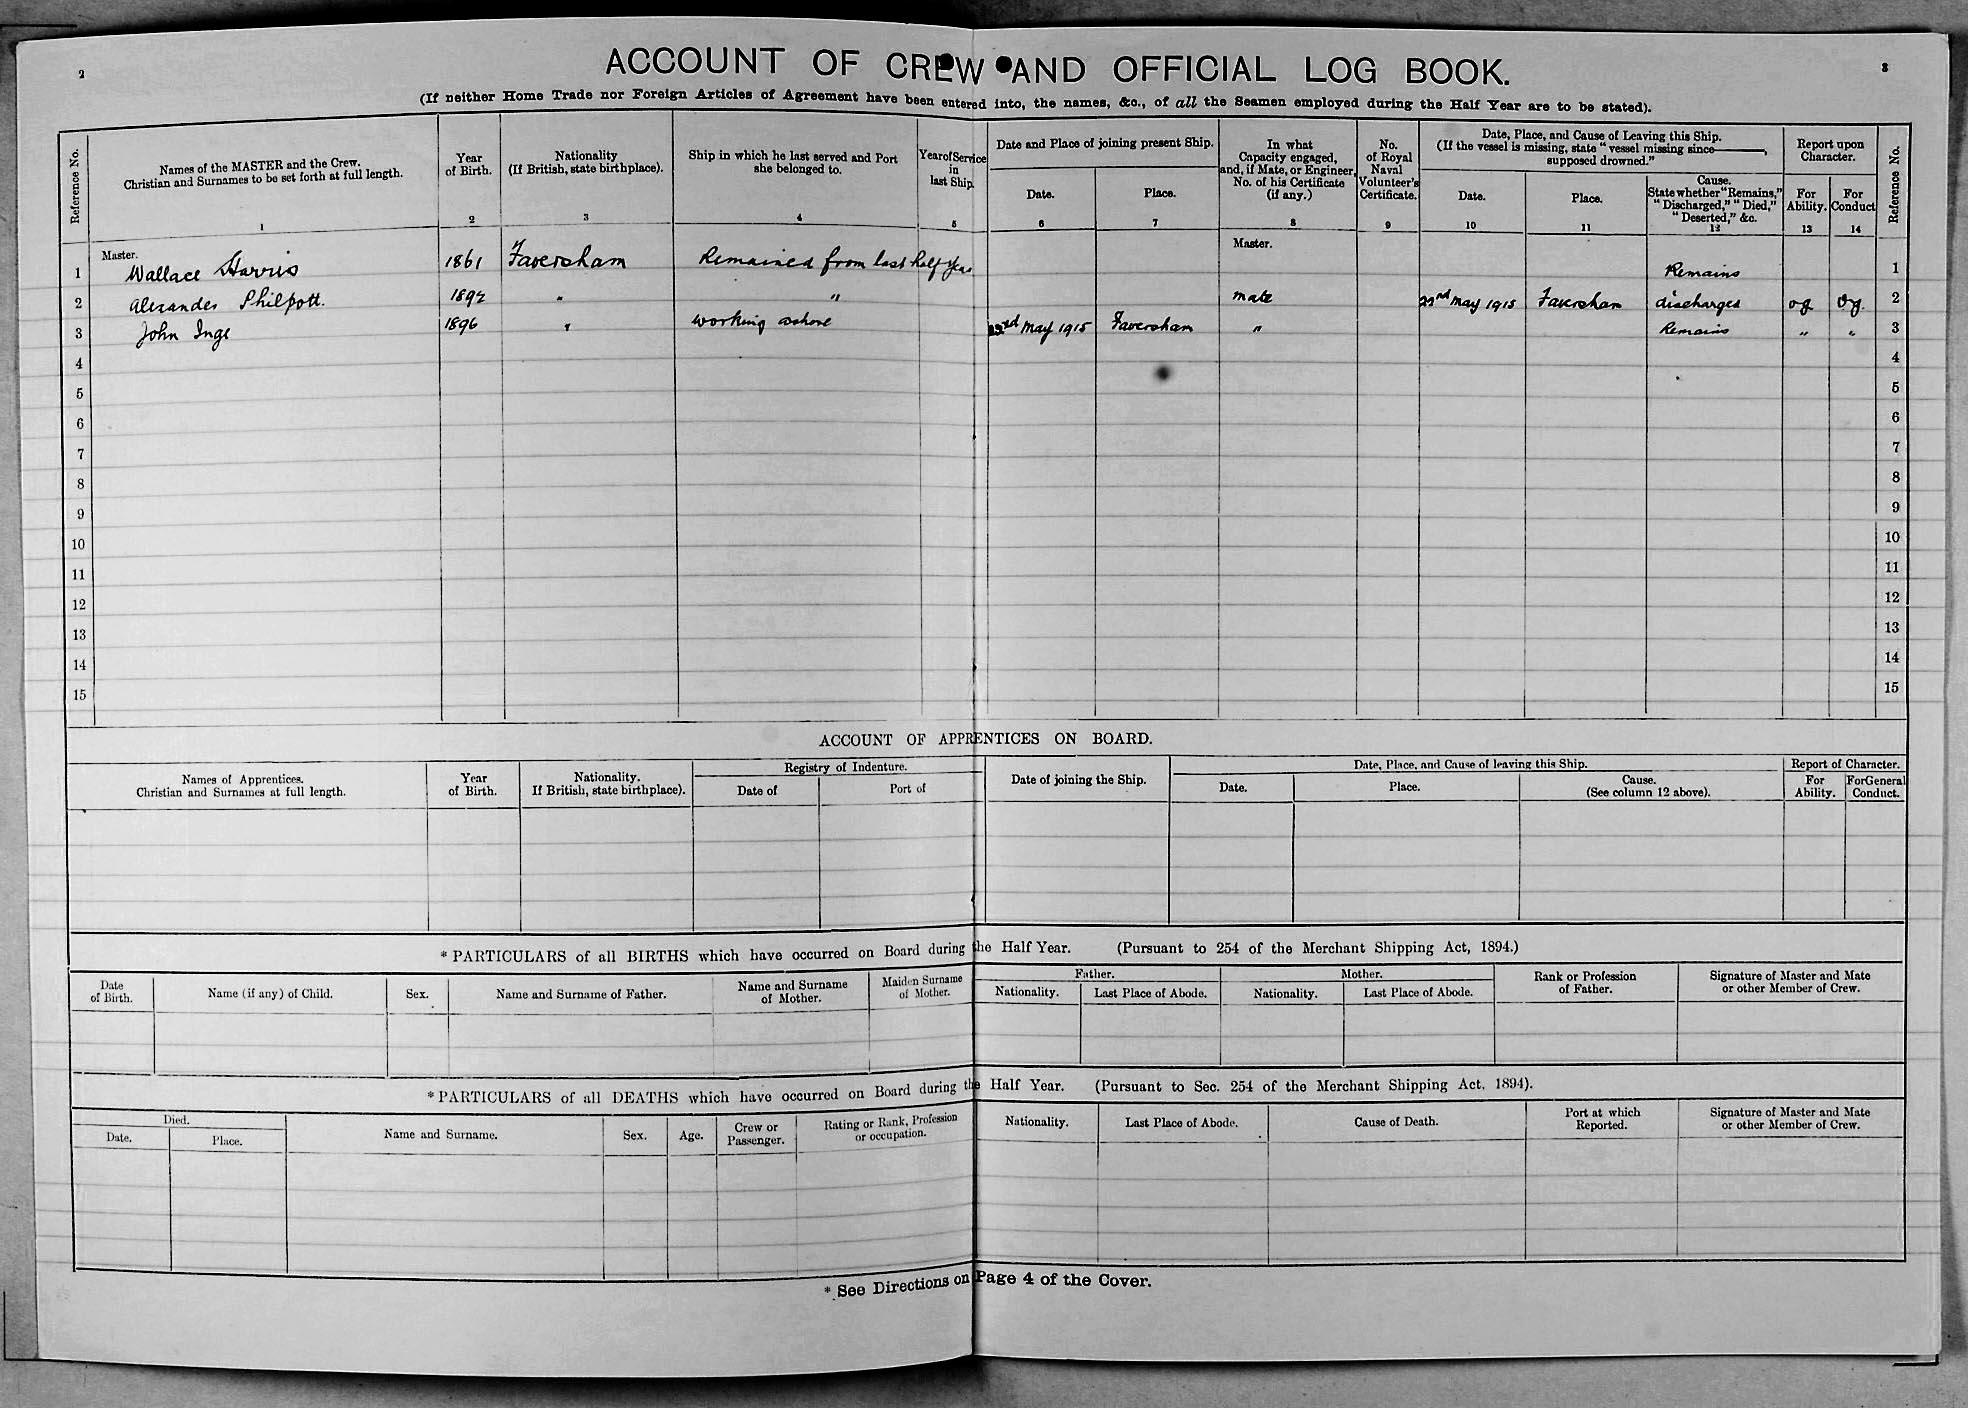 2
3
ACCOUNT OF CREW AND OFFICIAL LOG BOOK.
(If neither Home Trade nor Foreign Articles of Agreement have been entered into, the names, &c., of all the Seamen employed during the Half Year are to be stated).
Reference No.
Names of the MASTER and the Crew.
Christian and Surnames to be set forth at full length.
1
Year
of Birth.
2
Nationality
(If British, state birthplace).
3
Ship in which he last served and Port
she belonged to.
4
Year of Service
in
last Ship.
5
Date and Place of joining present Ship.
Date.
6
Place.
7
In what
Capacity engaged,
and, if Mate, or Engineer,
No. of his Certificate
(if any.)
8
No.
of Royal
Naval
Volunteer's
Certificate.
9
Date, Place, and Cause of Leaving this Ship.
(If the vessel is missing, state "vessel missing since ———,
supposed drowned."
Date.
10
Place.
11
Cause.
State whether "Remains,"
"Discharged," "Died,"
"Deserted," &c.
12
Report upon
Character.
For
Ability.
13
For
Conduct
14
Reference No.
Master.
Master.
1 Wallace Harris 1861 Faversham Remained from last half year Remains 1
2 Alexander Philpott. 1892 " " mate 23rd May 1915 Faversham discharged vg vg. 2
3 John Inge 1896 " working ashore 23rd May 1915 Faversham " Remains " " 3
4 4
5 5
6 6
7 7
8 8
9 9
10 10
11 11
12 12
13 13
14 14
15 15
ACCOUNT OF APPRENTICES ON BOARD.
Names of Apprentices.
Christian and Surnames at full length.
Year
of Birth.
Nationality.
If British, state birthplace).
Registry of Indenture.
Date of
Port of
Date of joining the Ship.
Date, Place, and Cause of leaving this Ship.
Date.
Place.
Cause.
(See column 12 above).
Report of Character.
For
Ability.
For General
Conduct.
* PARTICULARS of all BIRTHS which have occurred on Board during the Half Year. (Pursuant to 254 of the Merchant Shipping Act, 1894.)
Date
of Birth.
Name (if any) of Child.
Sex.
Name and Surname of Father.
Name and Surname
of Mother.
Maiden Surname
of Mother.
Father.
Nationality.
Last Place of Abode.
Mother.
Nationality.
Last Place of Abode.
Rank or Profession
of Father.
Signature of Master and Mate
or other Member of Crew.
* PARTICULARS of all DEATHS which have occurred on Board during the Half Year. (Pursuant to Sec. 254 of the Merchant Shipping Act, 1894).
Died.
Date.
Place.
Name and Surname.
Sex.
Age.
Crew or
Passenger.
Rating or Rank, Profession
or occupation.
Nationality.
Last Place of Abode.
Cause of Death.
Port at which
Reported.
Signature of Master and Mate
or other Member of Crew.
* See Directions on Page 4 of the Cover.